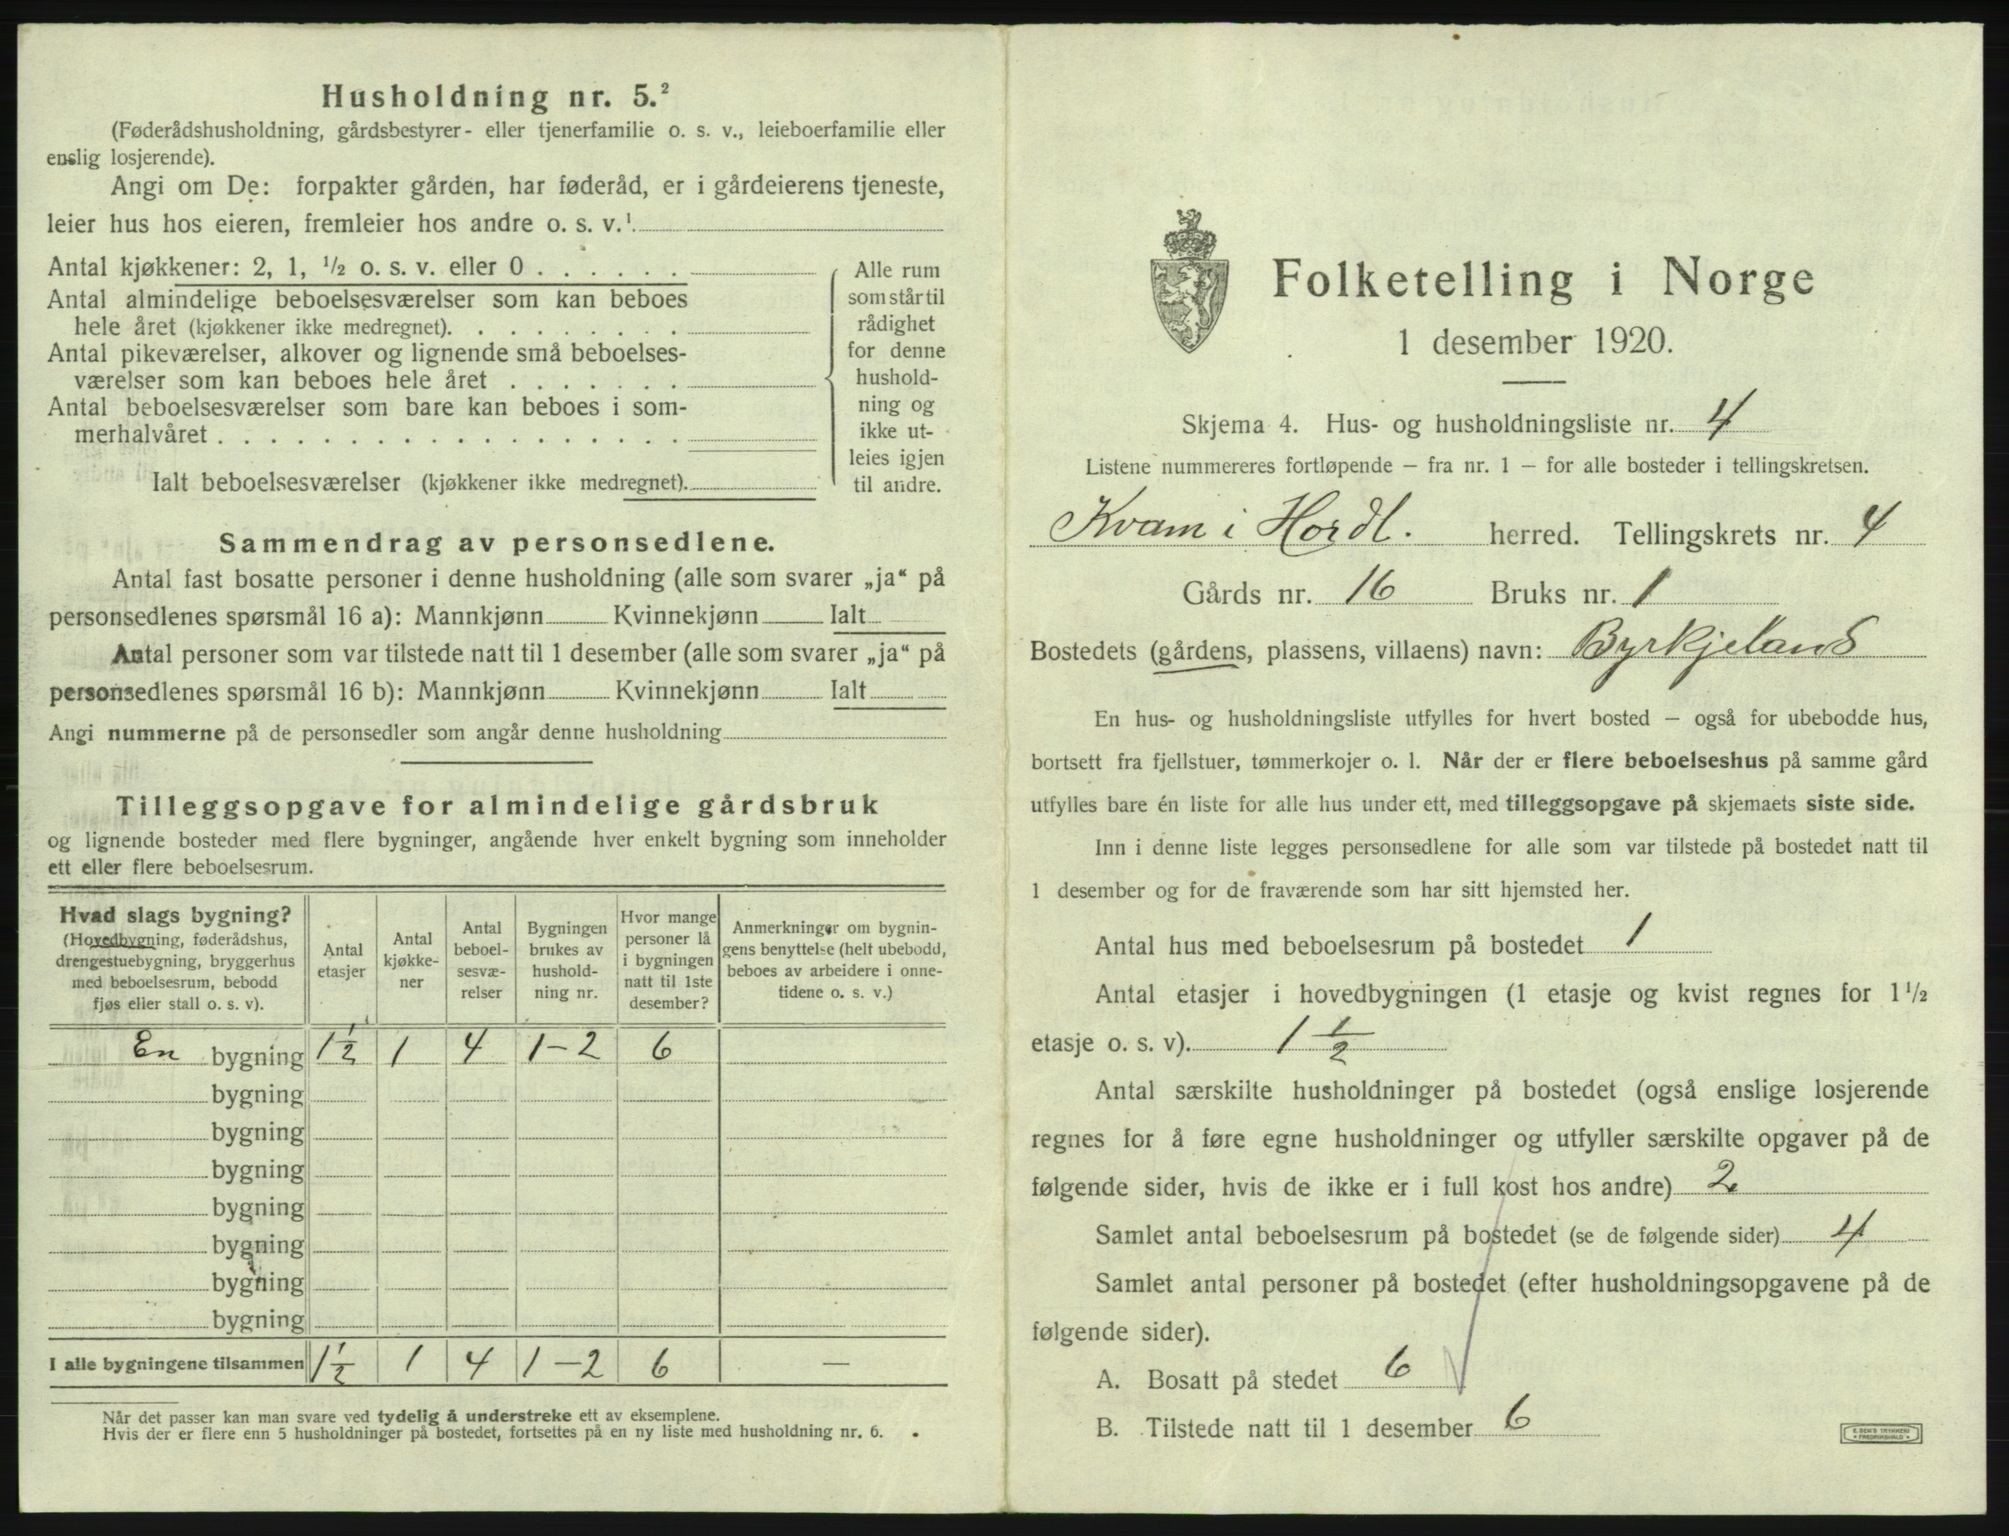 Husholdning nr. 5.²
(Føderådshusholdning, gårdsbestyrer- eller tjenerfamilie o. s. v., leieboerfamilie eller
enslig losjerende).
Angi om De: forpakter gården, har føderåd, er i gårdeierens tjeneste,
leier hus hos eieren, fremleier hos andre o. s. v.¹
Antal kjøkkener: 2, 1, ¹/₂ o. s. v. eller 0 . . . . . .
Antal almindelige beboelsesværelser som kan beboes
hele året (kjøkkener ikke medregnet). . . . . . . . .
Antal pikeværelser, alkover og lignende små beboelses-
værelser som kan beboes hele året . . . . . . .
Antal beboelsesværelser som bare kan beboes i som-
merhalvåret . . . . . . . . . . . . . . . . . .
Ialt beboelsesværelser (kjøkkener ikke medregnet).
Alle rum
som står til
rådighet
for denne
hushold-
ning og
ikke ut-
leies igjen
til andre.
Sammendrag av personsedlene.
Antal fast bosatte personer i denne husholdning (alle som svarer „ja“ på
personsedlenes spørsmål 16 a): Mannkjønn Kvinnekjønn Ialt
Antal personer som var tilstede natt til 1 desember (alle som svarer „ja“ på
personsedlenes spørsmål 16 b): Mannkjønn Kvinnekjønn Ialt
Angi nummerne på de personsedler som angår denne husholdning
Tilleggsopgave for almindelige gårdsbruk
og lignende bosteder med flere bygninger, angående hver enkelt bygning som inneholder
ett eller flere beboelsesrum.
Hvad slags bygning?
(Hovedbygning, føderådshus,
drengestuebygning, bryggerhus
med beboelsesrum, bebodd
fjøs eller stall o. s. v).
Antal
etasjer
Antal
kjøkke-
ner
Antal
beboel-
sesvæ-
relser
Bygningen
brukes av
hushold-
ning nr.
Hvor mange
personer lå
i bygningen
natt til 1ste
desember?
Anmerkninger om bygnin-
gens benyttelse (helt ubebodd,
beboes av arbeidere i onne-
tidene o. s. v.)
En bygning 1 1/2 1 4 1-2 6
bygning
bygning
bygning
bygning
bygning
bygning
bygning
I alle bygningene tilsammen 1 1/2 1 4 1-2 6 —
Når det passer kan man svare ved tydelig å understreke ett av eksemplene.
Hvis der er flere enn 5 husholdninger på bostedet, fortsettes på en ny liste med husholdning nr. 6.
Folketelling i Norge
1 desember 1920.
Skjema 4. Hus- og husholdningsliste nr. 4
Listene nummereres fortløpende – fra nr. 1 – for alle bosteder i tellingskretsen.
Kvam i Hordl. herred. Tellingskrets nr. 4
Gårds nr. 16 Bruks nr. 1
Bostedets (gårdens, plassens, villaens) navn: Byrkjeland
En hus- og husholdningsliste utfylles for hvert bosted – også for ubebodde hus,
bortsett fra fjellstuer, tømmerkojer o. l. Når der er flere beboelseshus på samme gård
utfylles bare én liste for alle hus under ett, med tilleggsopgave på skjemaets siste side.
Inn i denne liste legges personsedlene for alle som var tilstede på bostedet natt til
1 desember og for de fraværende som har sitt hjemsted her.
Antal hus med beboelsesrum på bostedet 1
Antal etasjer i hovedbygningen (1 etasje og kvist regnes for 1¹/₂
etasje o. s. v). 1 1/2
Antal særskilte husholdninger på bostedet (også enslige losjerende
regnes for å føre egne husholdninger og utfyller særskilte opgaver på de
følgende sider, hvis de ikke er i full kost hos andre) 2
Samlet antal beboelsesrum på bostedet (se de følgende sider) 4
Samlet antal personer på bostedet (efter husholdningsopgavene på de
følgende sider).
A. Bosatt på stedet 6
B. Tilstede natt til 1 desember 6
E. SEM'S TRYKKERI
FREDRIKSHALD